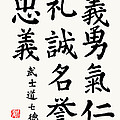 義勇氣仁
礼誠名誉
忠義
武士道七徳